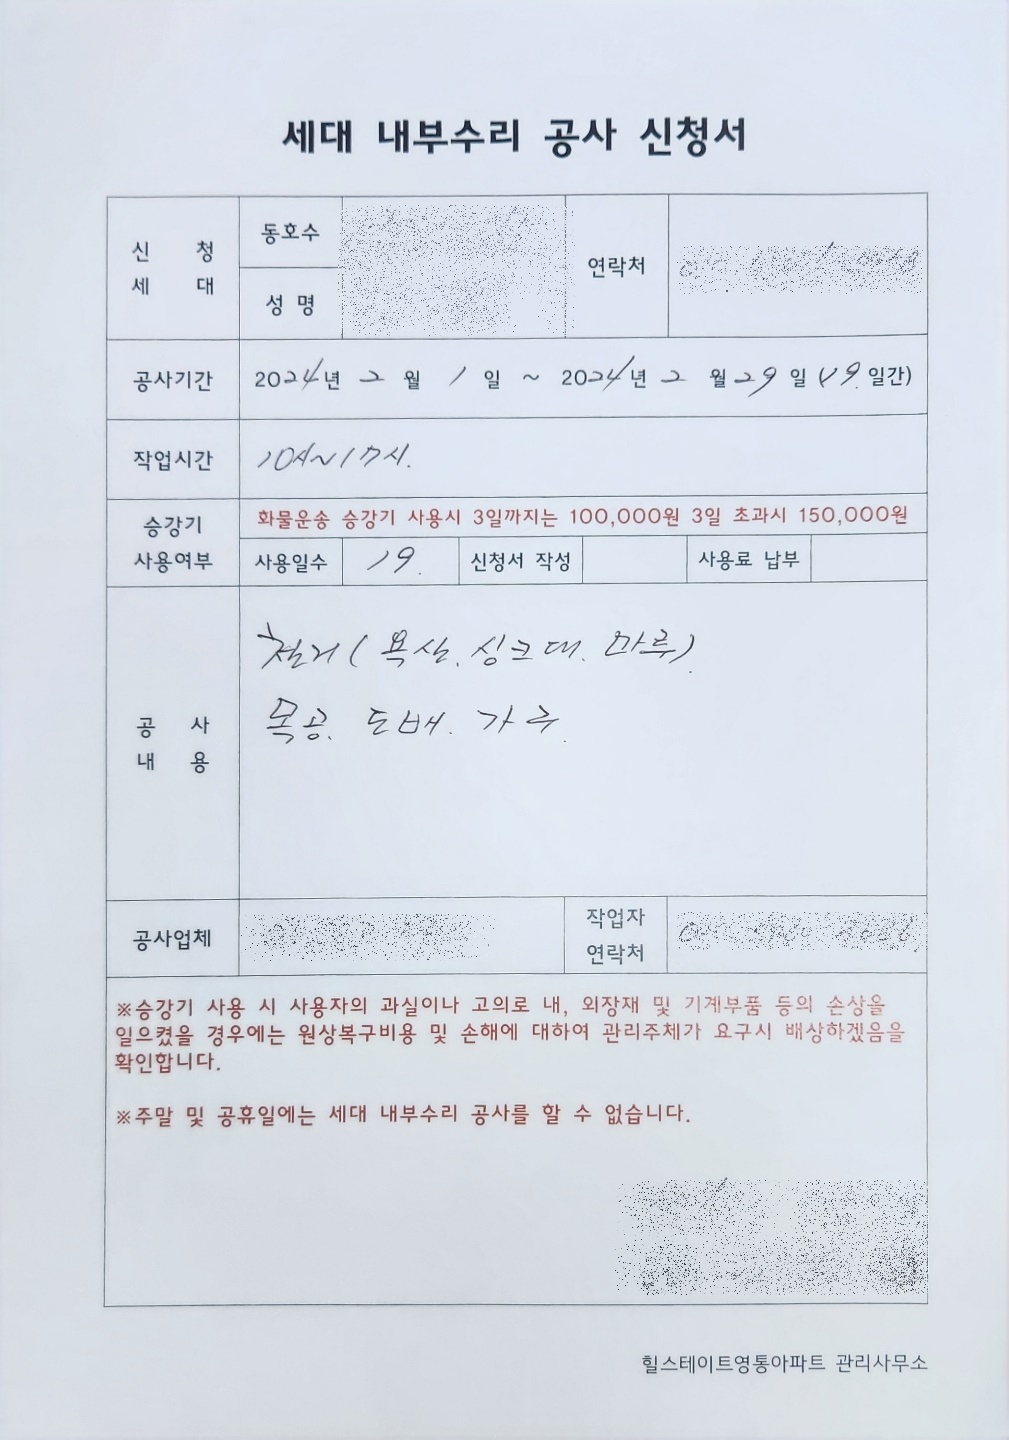 세대 내부수리 공사 신청서
신 청 세 대
동호수
성 명
연락처
공사기간
2024년 2월 1일 ~ 2024년 2월 29일 (19일간)
작업시간
10시~17시.
승강기 사용여부
화물운송 승강기 사용시 3일까지는 100,000원 3일 초과시 150,000원
사용일수 19. 신청서 작성 사용료 납부
공 사 내 용
철거(욕실.싱크대.마루).
목공. 도배. 가구.
공사업체
작업자 연락처
※승강기 사용 시 사용자의 과실이나 고의로 내, 외장재 및 기계부품 등의 손상을
일으켰을 경우에는 원상복구비용 및 손해에 대하여 관리주체가 요구시 배상하겠음을
확인합니다.
※주말 및 공휴일에는 세대 내부수리 공사를 할 수 없습니다.
힐스테이트영통아파트 관리사무소